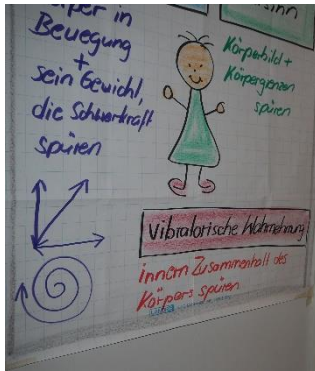 in
Bewegung
+
sein Gewicht,
die Schwerkraft
spüren
Körperbild +
Körpergrenzen
spüren
Vibratorische Wahrnehmung
innern Zusammenhalt des
Körpers spüren